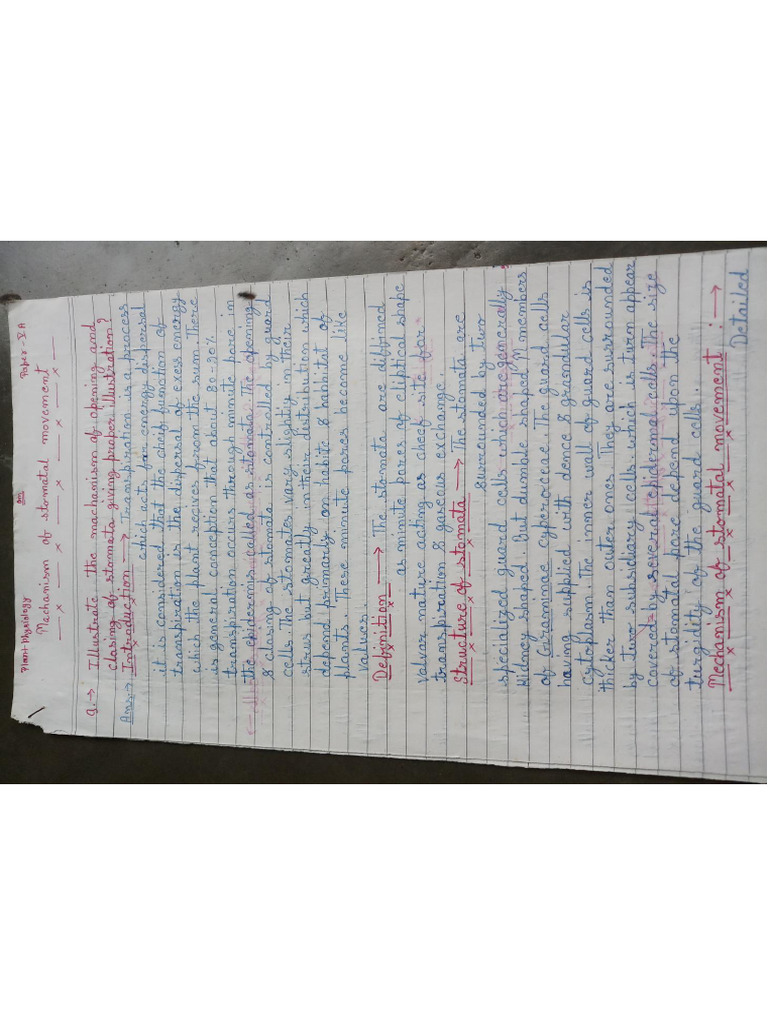 Plant Physiology Paper - V A
Mechanism of stomatal movement
Q. → Illustrate the machanism of opening and
closing of stomata giving proper illustration?
Ans:→ Introduction → Transpiration is a process
which acts for energy dispersal
it is considered that the cheif function of
transpiration is the dispersal of exess energy
which the plant recives from the sum. There
is general conception that about 80-90%
transpiration occurs through minute pore in
the epidermis called as stomata. The opening
& closing of stomata is controlled by guard
cells. The stomates vary slightly in their
strus but greatly in their distribution which
depend primarly on habite & habbitat of
plants. These minute pores become like
values.
Definition → The stomata are difined
as minute pores of eliptical shape
Valvar nature acting as cheif site for
transpiration & gaseous exchange.
Structure of stomata → The stomata are
surrounded by two
specialized guard cells which are generally
Kidency shaped. But dumble shaped in members
of Giraminae cyperaceae. The guard cells
having supplied with dence & grandular
cytoplasm. The inner wall of guard cells is
thicker than outer ones. They are surrounded
by two subsidiary cells. which is turn appear
covered by several epidermal cells. The size
of stomatal pore depend upon the
turgidity of the guard cells.
Mechanism of stomatal movement : →
Detailed